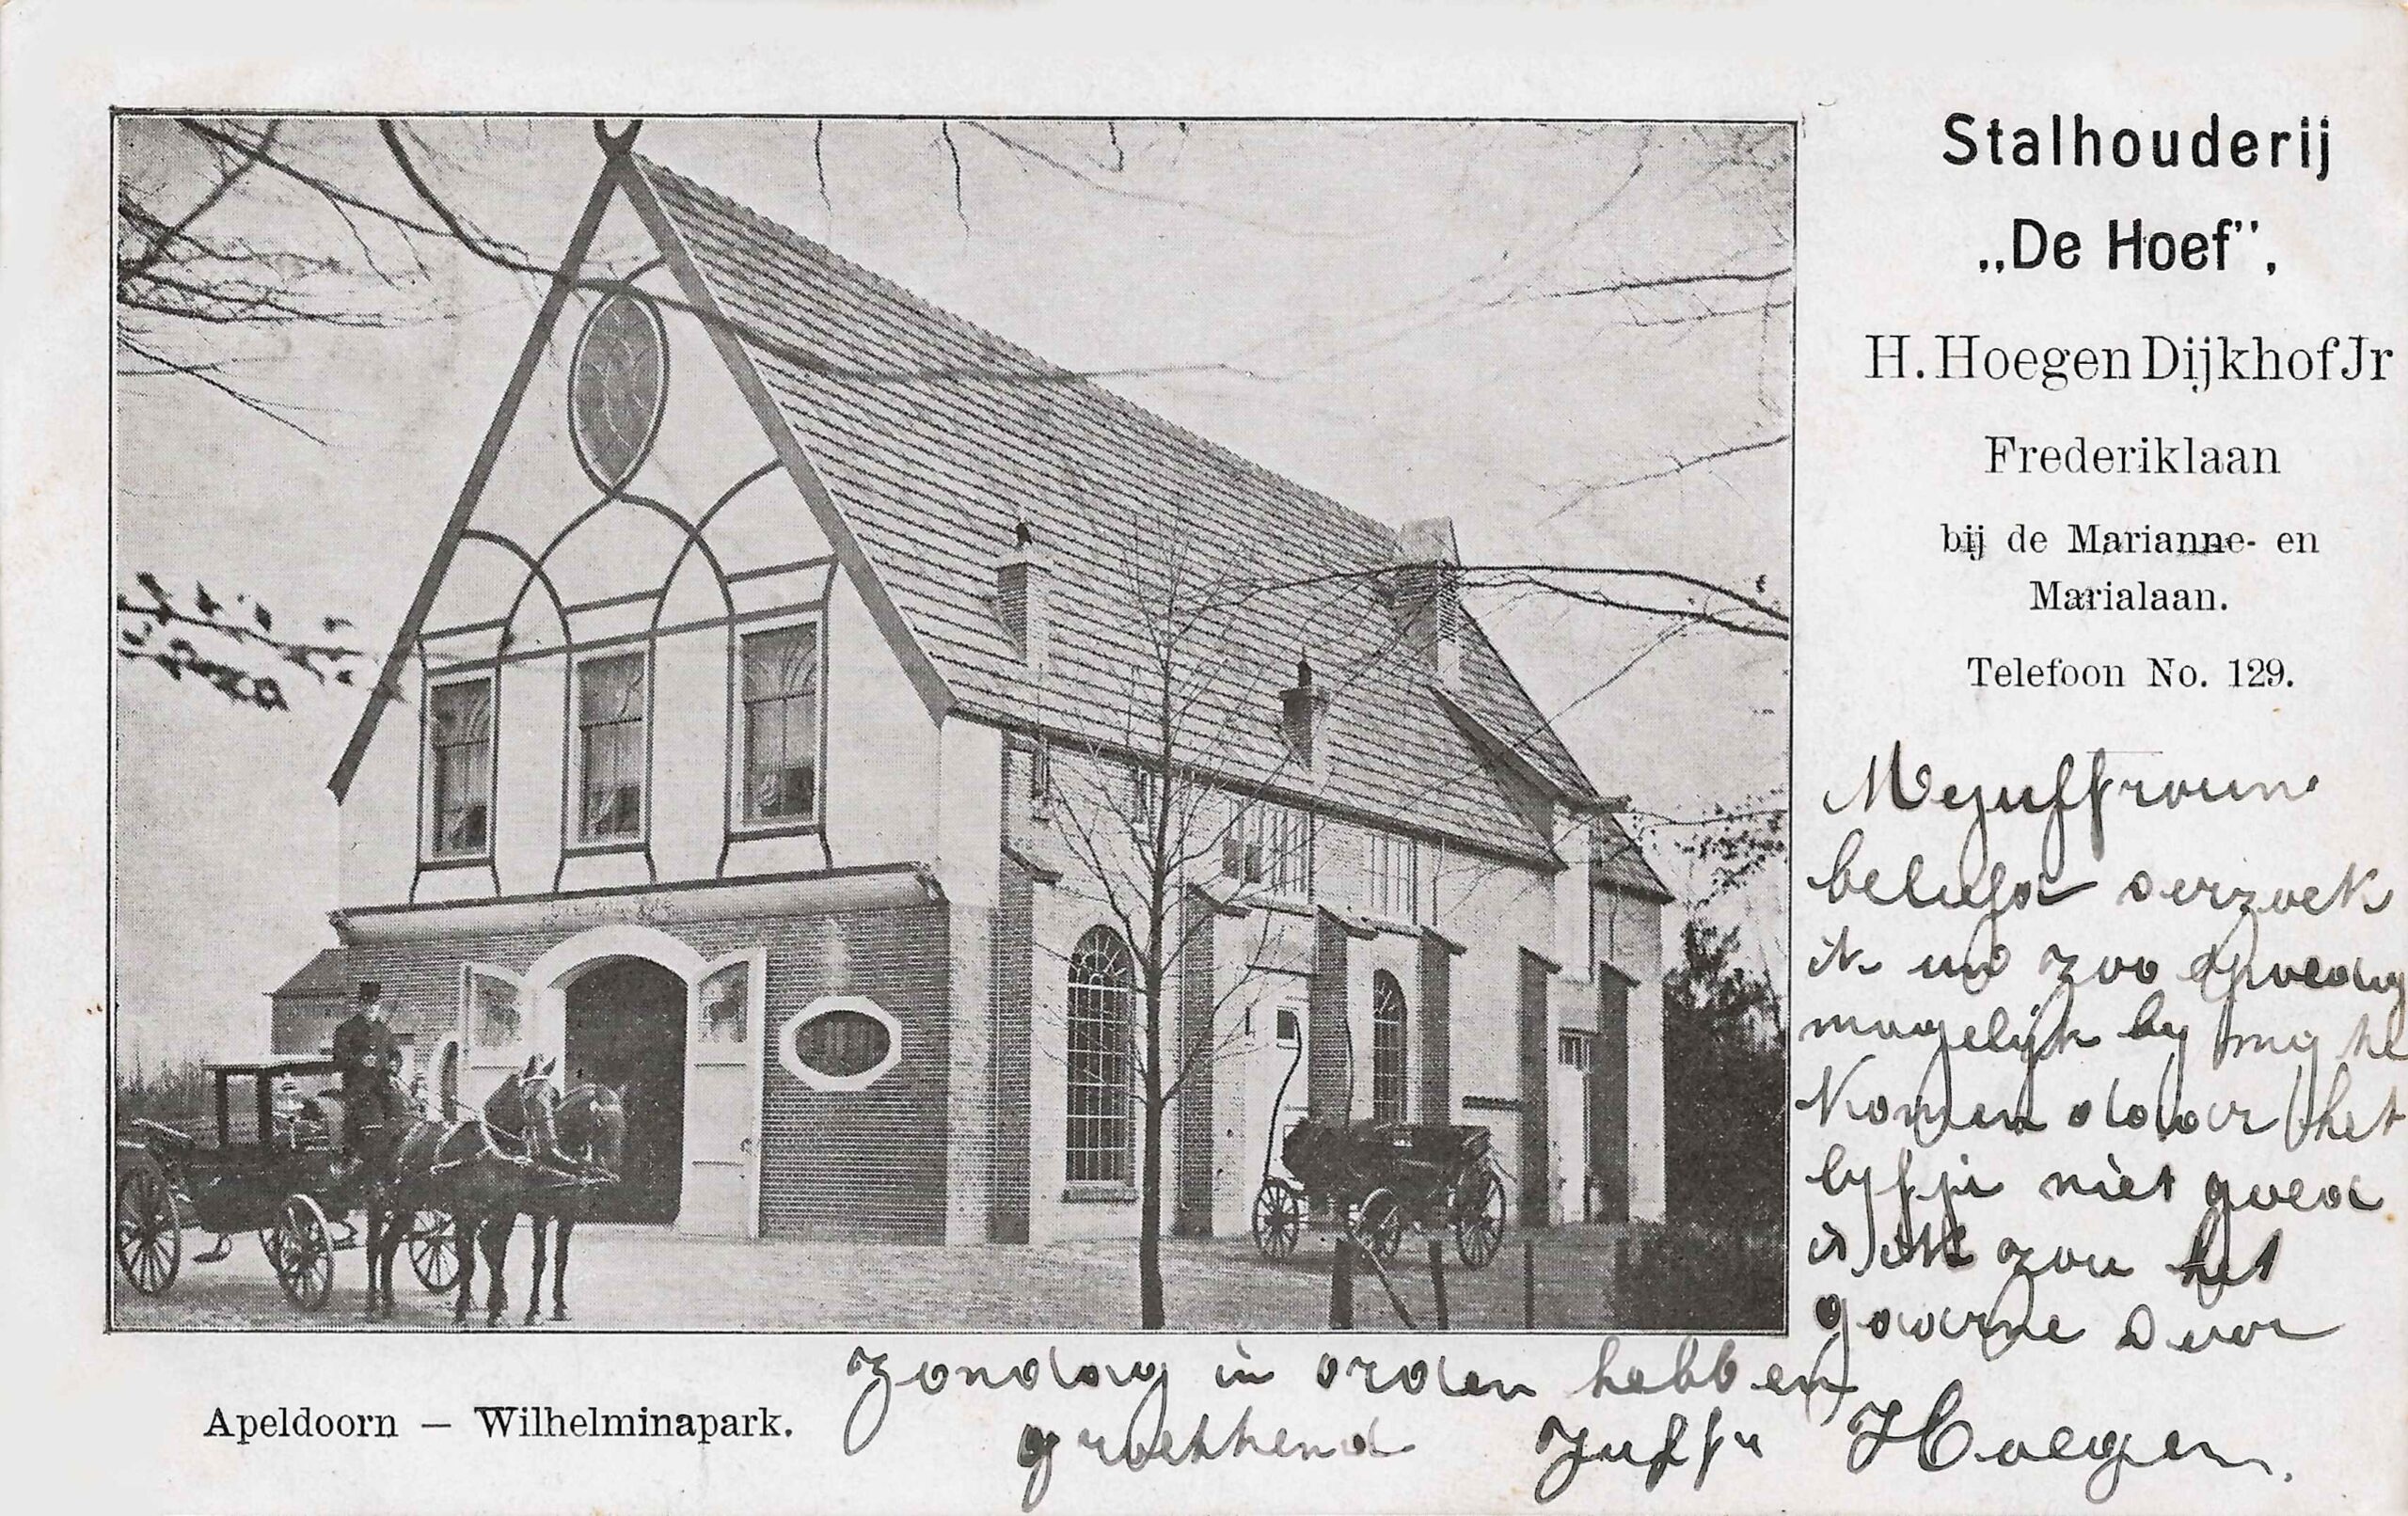 Stalhouderij
„De Hoef”,
H. Hoegen Dijkhof Jr
Frederiklaan
bij de Marianne- en
Marialaan.
Telefoon No. 129.
Mejuffrouw
beleefd verzoek
ik uw zoo spoedig
mogelijk by my te
komen daar het
lyfje niet goed
is ik zou het
gaarne voor
zondag in orden hebben
groettend Juffr Hoegen.
Apeldoorn — Wilhelminapark.